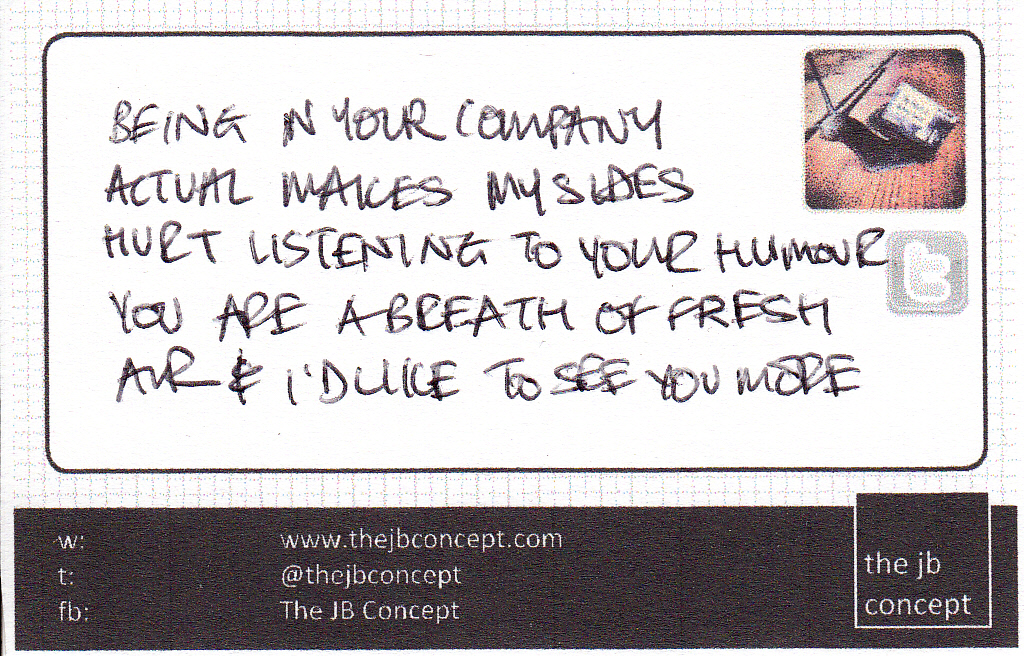 BEING IN YOUR COMPANY
ACTUAL MAKES MY SIDES
HURT LISTENING TO YOUR HUMOUR
YOU ARE A BREATH OF FRESH
AIR & I'D LIKE TO SEE YOU MORE
w: www.thejbconcept.com
t: @thejbconcept
fb: The JB Concept
the jb
concept